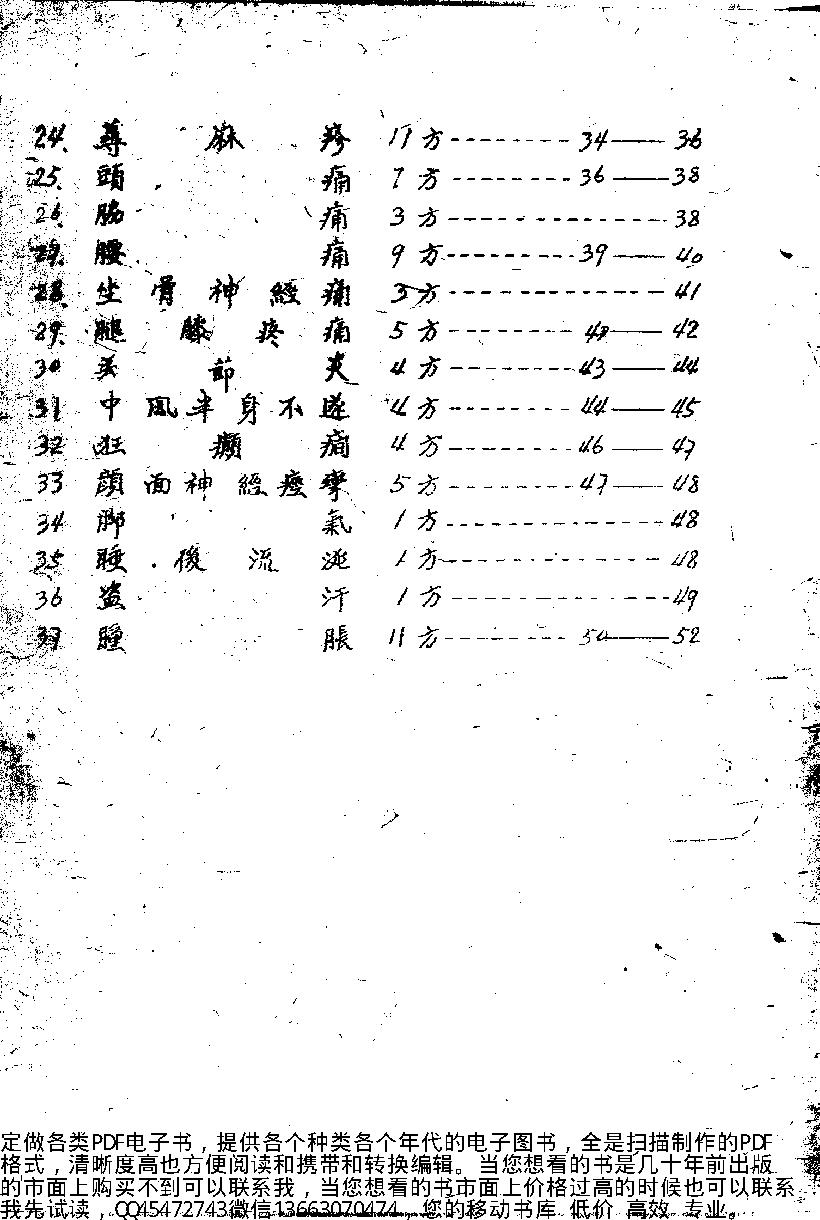 24. 蕁麻疹 11方--------34——36
25. 頭痛 7方--------36——38
26. 脇痛 3方--------------38
29. 腰痛 9方--------39——40
28. 坐骨神經痛 3方--------------41
29. 腿膝疼痛 5方--------42——42
30 关節炎 4方--------43——44
31 中風半身不遂 4方--------44——45
32 狂癲癇 4方--------46——47
33 顔面神經痙攣 5方--------47——48
34 脚氣 1方--------------48
35 睡後流涎 1方--------------48
36 盗汗 1方--------------49
37 腫脹 11方--------50——52
定做各类PDF电子书，提供各个种类各个年代的电子图书，全是扫描制作的PDF
格式，清晰度高也方便阅读和携带和转换编辑。当您想看的书是几十年前出版
的市面上购买不到可以联系我，当您想看的书市面上价格过高的时候也可以联系
我先试读，QQ45472743微信13663070474，您的移动书库 低价 高效 专业。